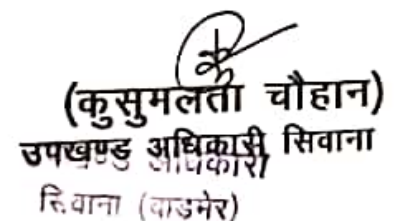 (कुसुमलता चौहान)
उपखण्ड अधिकारी सिवाना
उपखण्ड अधिकारी
सिवाना (बाडमेर)